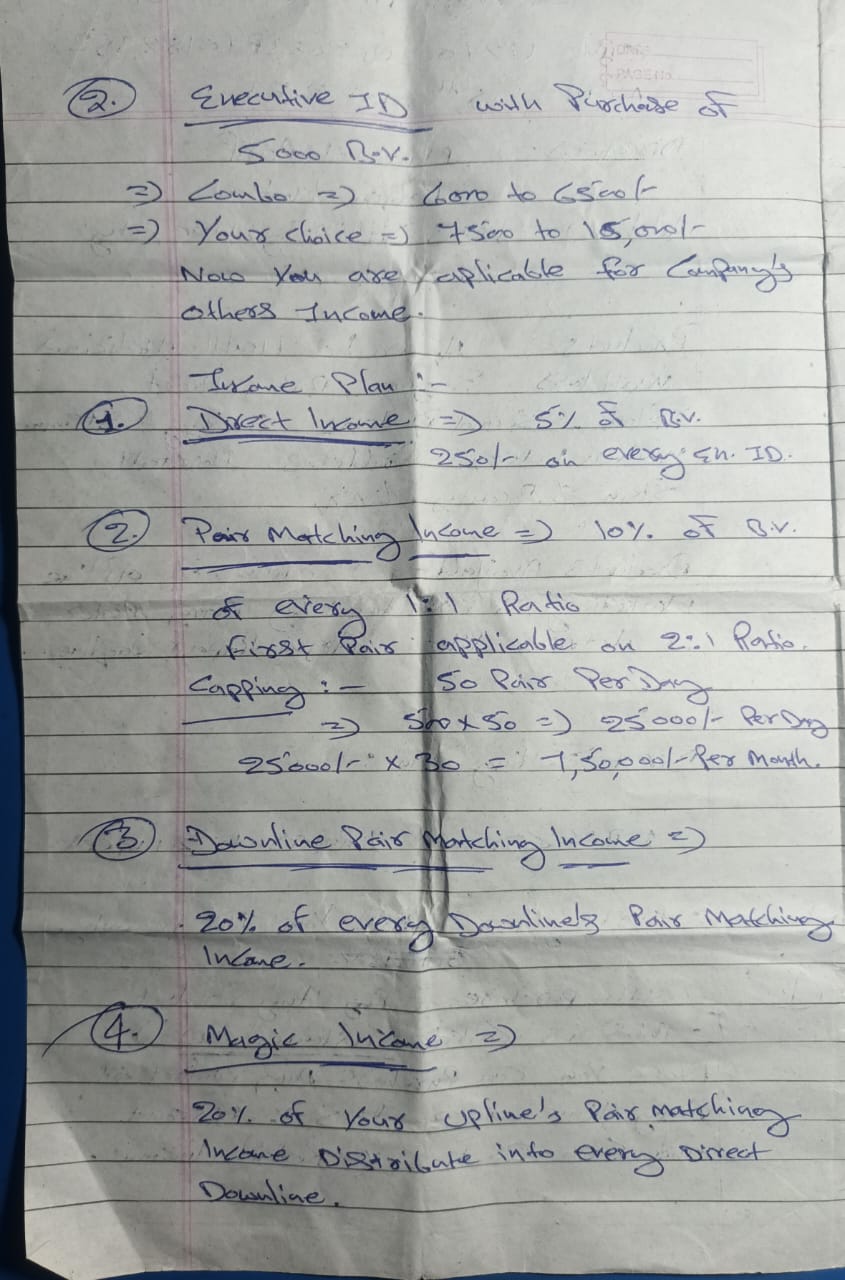 DATE
PAGE No.
2. Executive ID with Purchase of
5000 B.V.
=> Combo => 6000 to 6500/-
=> Your choice => 7500 to 15,000/-
Now You are aplicable for Company's
others Income.
Income Plan :-
1. Direct Income => 5% of B.V.
250/- on every En. ID.
2. Pair Matching Income => 10% of B.V.
of every 1:1 Ratio
First Pair applicable on 2:1 Ratio.
Capping :- 50 Pair Per Day
=> 500 x 50 => 25000/- Per Day
25000/- x 30 = 7,50,000/- Per Month.
3. Downline Pair Matching Income =>
20% of every Downline's Pair Matching
Income.
4. Magic Income =>
20% of Your upline's Pair matching
Income Distribute into every Direct
Downline.